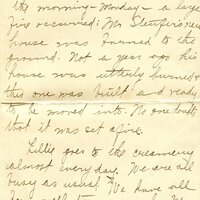 the morning - Monday - a large
fire occurred. Mr. new
house was burned to the
ground. Not a year ago his
house was utterly burned
this one was built and ready
to be moved into. No one doubts
that it was set afire.
Lillie goes to the creamery
almost every day. We are all
busy as usual. We have all